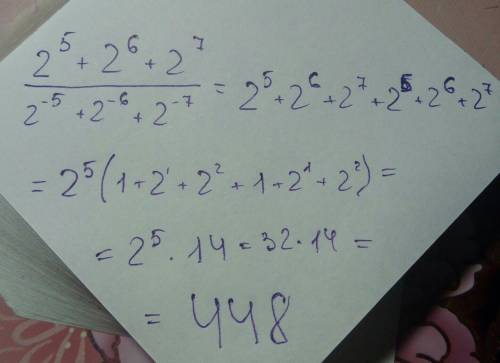 (2^5 + 2^6 + 2^7) / (2^-5 + 2^-6 + 2^-7) = 2^5 + 2^6 + 2^7 + 2^5 + 2^6 + 2^7
= 2^5 (1 + 2^1 + 2^2 + 1 + 2^1 + 2^2) =
= 2^5 · 14 = 32 · 14 =
= 448